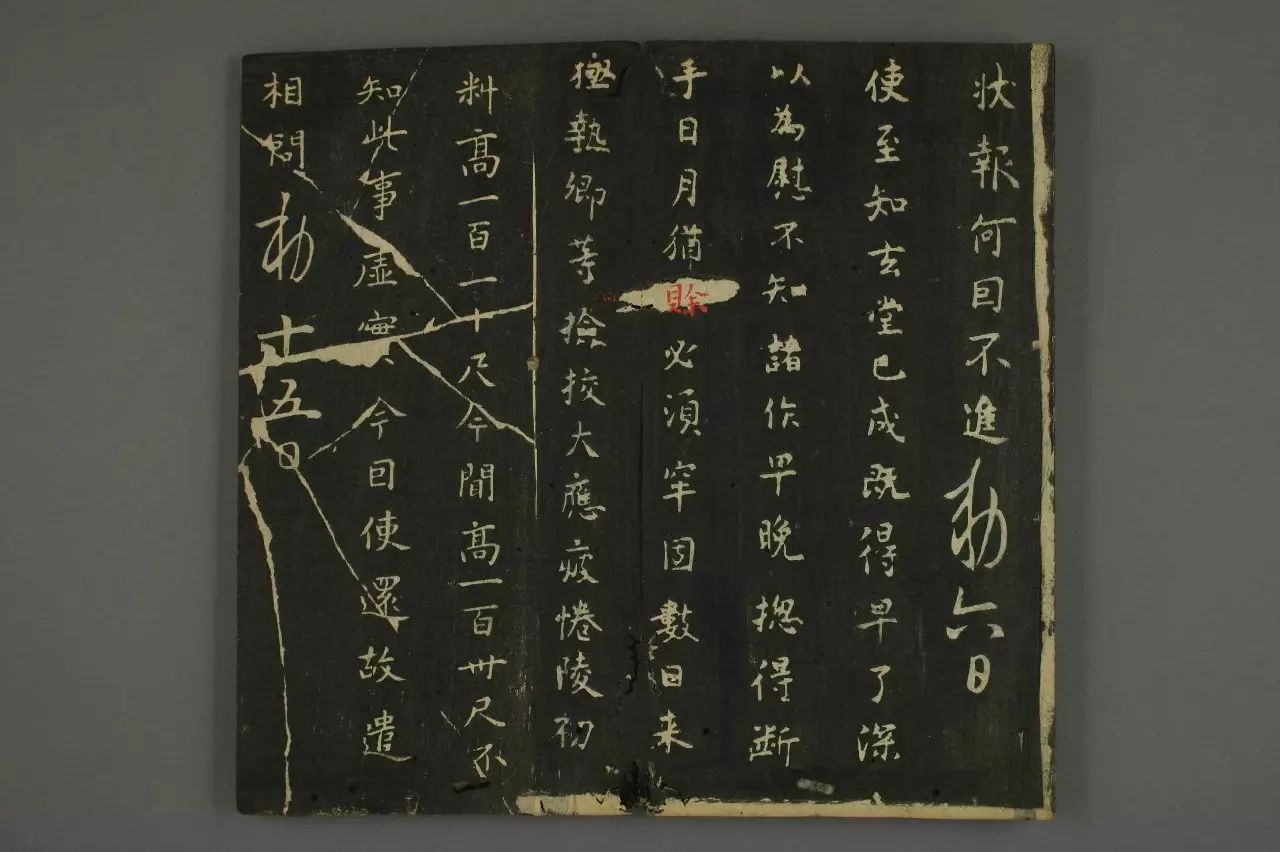 状報何囙不進勅六日
使至知玄堂已成既得早了深
以為慰不知諸作早晚揔得断
手日月猶賖必須牢固數日来
極熱卿等撿挍大應疲惓陵初
料高一百一十尺今聞高一百卅尺不
知此事虛實今囙使還故遣
相問勅十五日